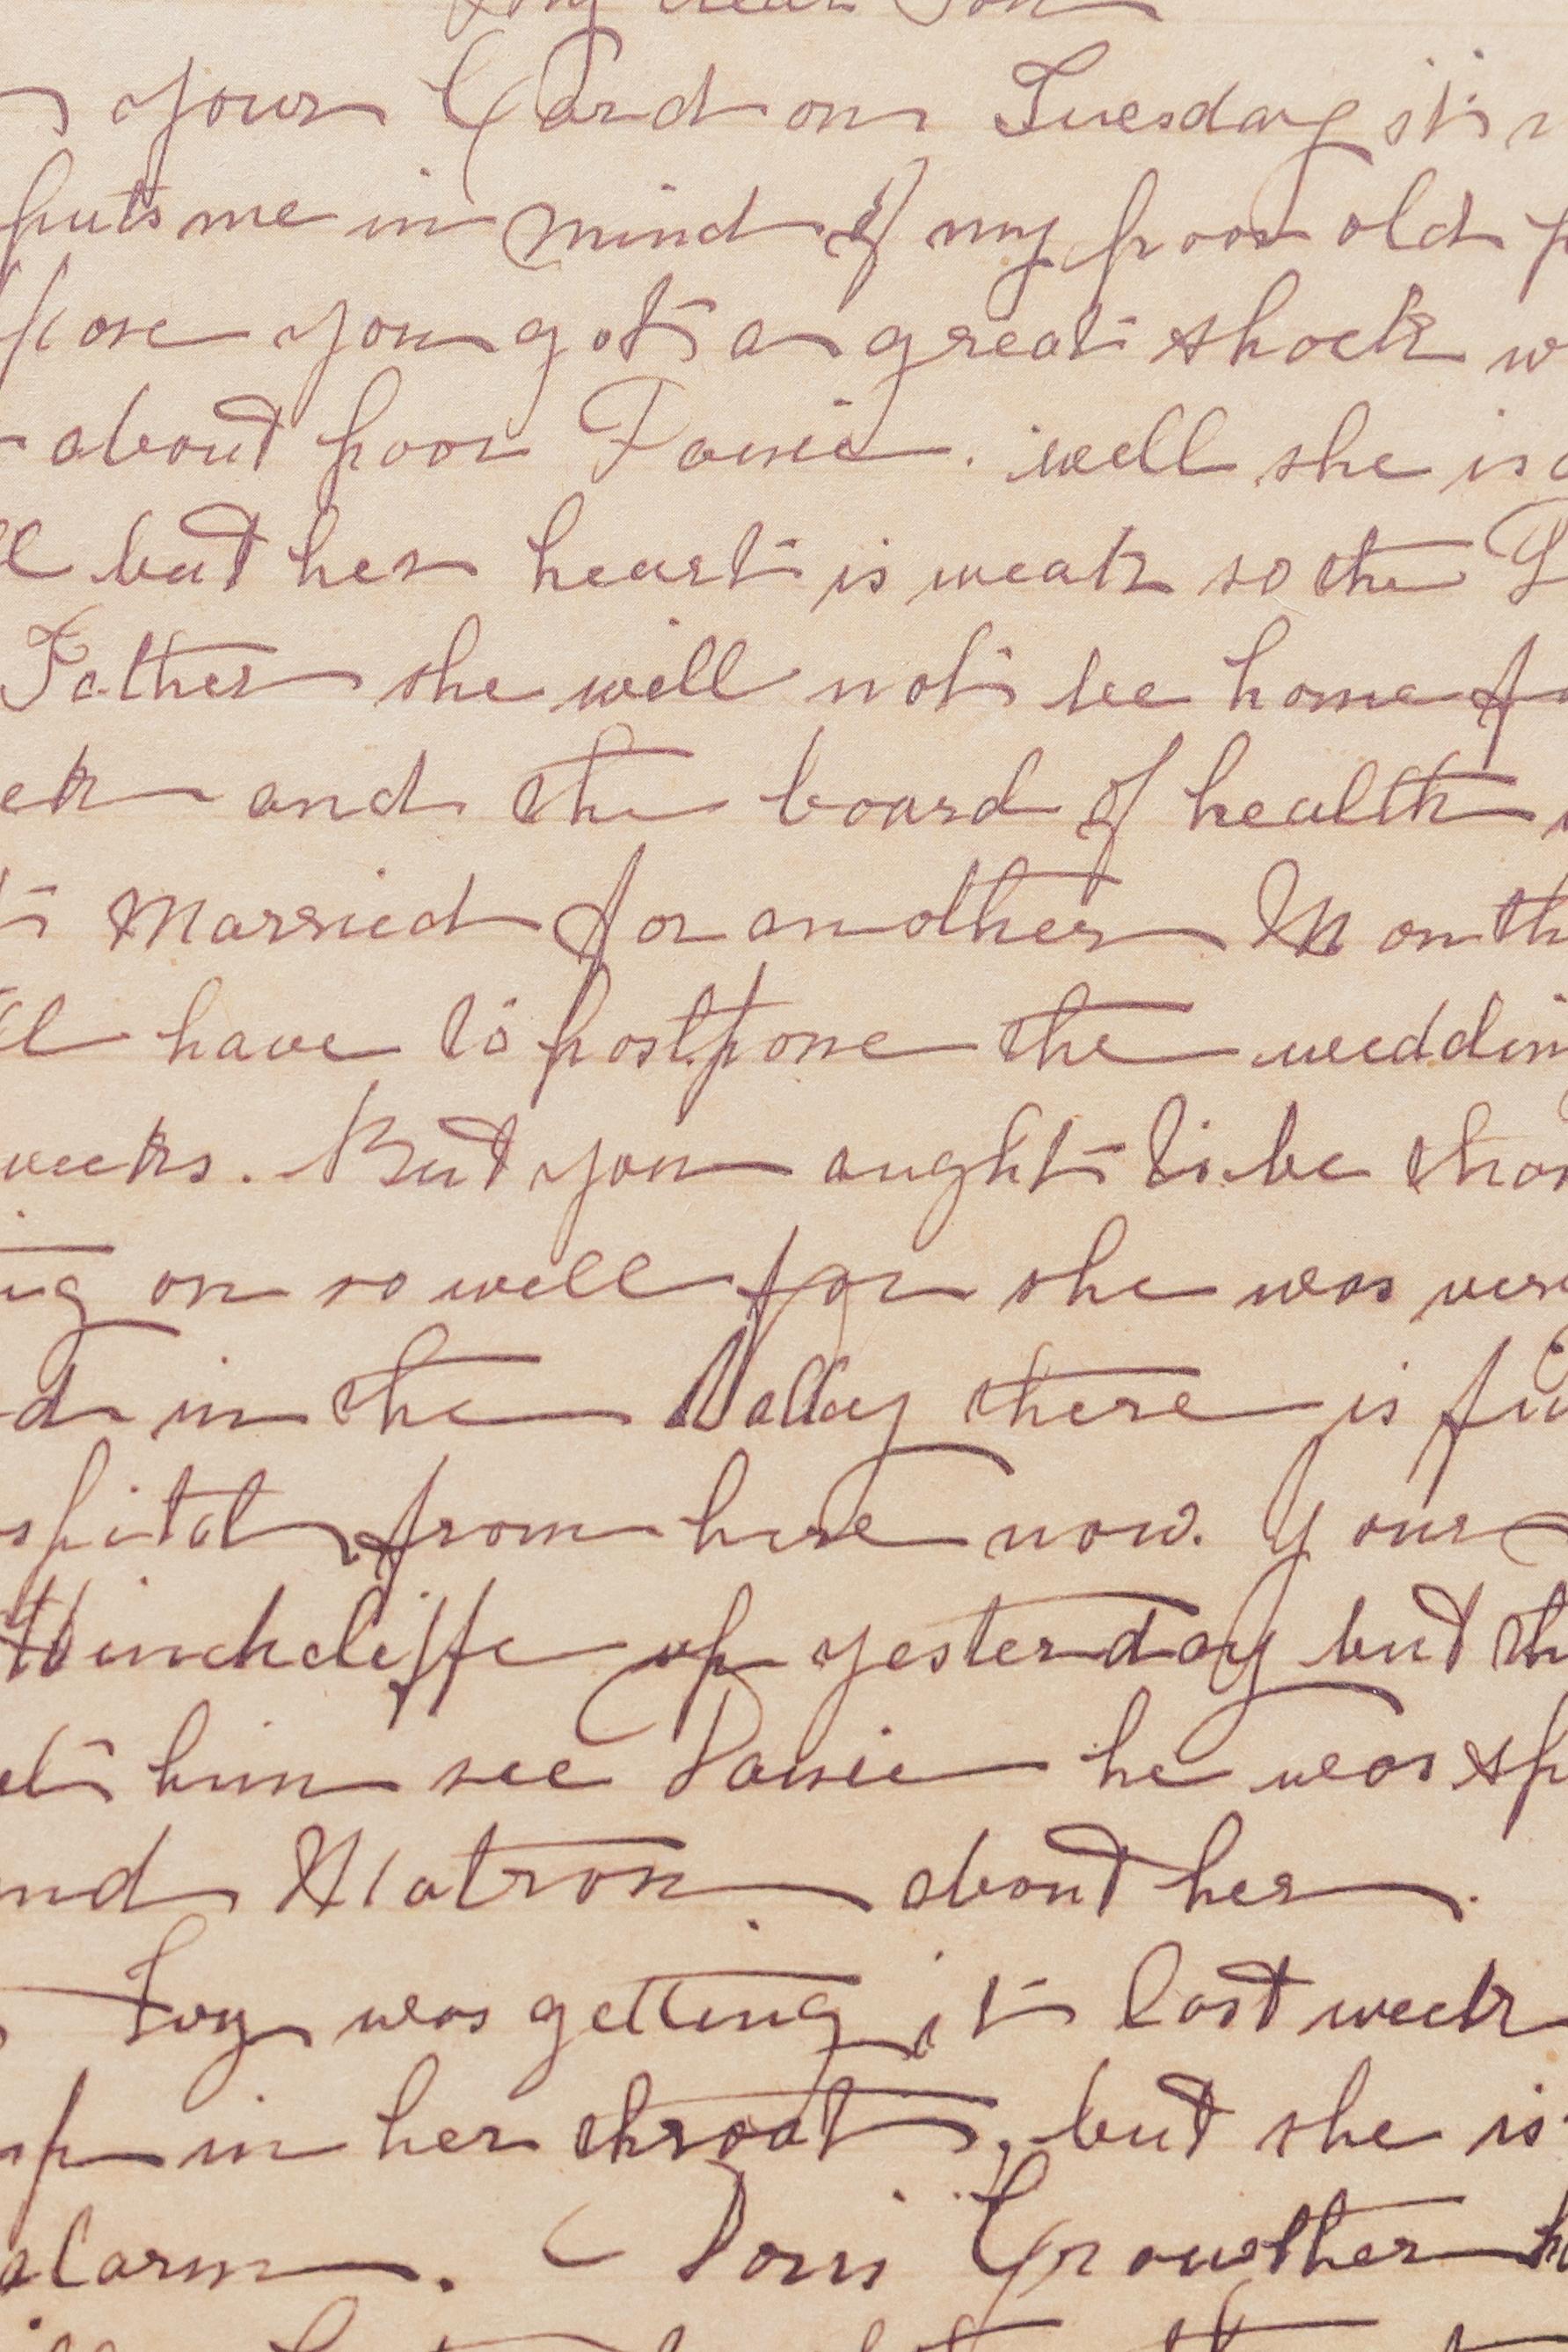 My dear Son
your Card on Tuesday it
puts me in mind of my poor old
pose you got a great shock w
about poor Pansie. well she is
ll but her heart is weak so the
Father she will not be home
ek and the board of health
t Married for another Month
ll have to postpone the weddin
weeks. But you aught to be than
ing on so well for she was ver
d in the Valley there is
spital from here now. Your
Hinchcliffe up yesterday but th
et him see Pansie he was sp
nd Matron about her.
was getting it last week
up in her throat, but she is
alarm. Doris Crowther